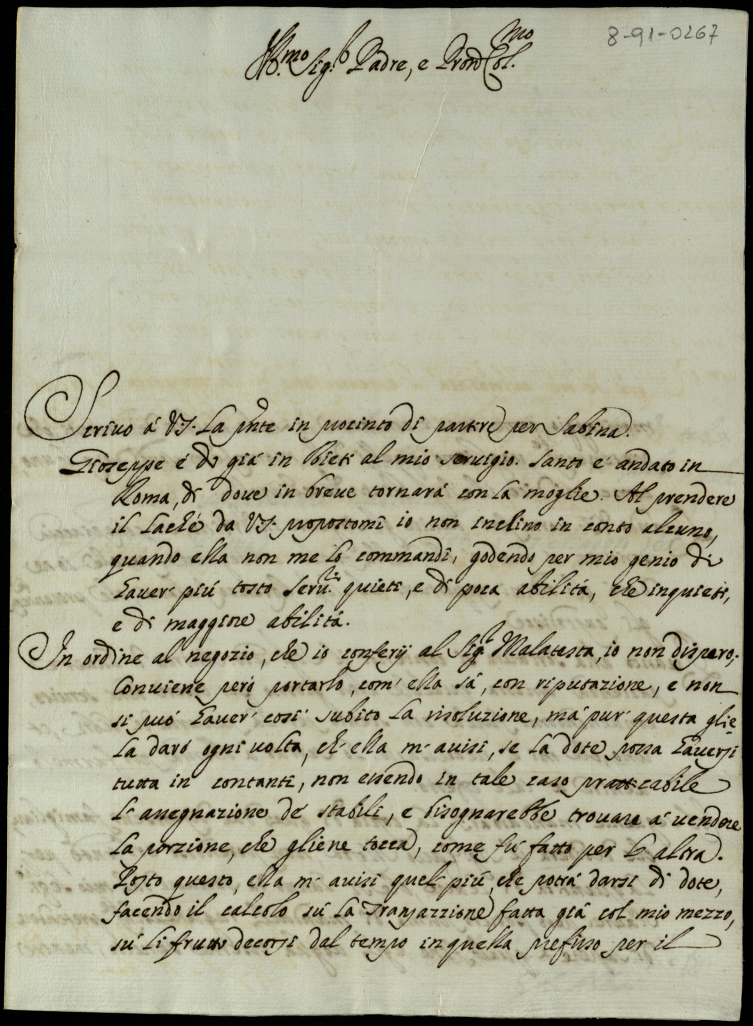 8-91-0267
Ill.mo Sig.r Padre, e Pron Col.mo
Scrivo á VS. la pnte in procinto di partire per Sabina.
Gioseppe é di giá in Rieti al mio servigio. Santo é andato in
Roma, di dove in breve tornará con la moglie. Al prendere
il Lacchè da VS. propostomi io non inclino in conto alcuno,
quando ella non me lo commandi, godendo per mio genio di
haver piú tosto serv.ri quieti, e di poca abilitá, che inquieti,
e di maggiore abilitá.
In ordine al negozio, che io conferij al Sig.r Malatesta, io non dispero.
Conviene peró portarlo, com' ella sá, con riputazione, e non
si puó haver cosí subito la risoluzione, má pur questa glie-
la daró ogni volta, ch' ella m' avisi, se la dote possa haversi
tutta in contanti, non essendo in tale caso pratticabile
l' assegnazione de' stabili, e bisognarebbe trovare á vendere
la porzione, che gliene tocca, come fú fatto per l' altra.
Posto questo, ella m' avisi quel piú, che potrá darsi di dote,
facendo il calcolo sú la Transazzione fatta giá col mio mezzo,
sú li frutti decorsi dal tempo in quella prefisso per il